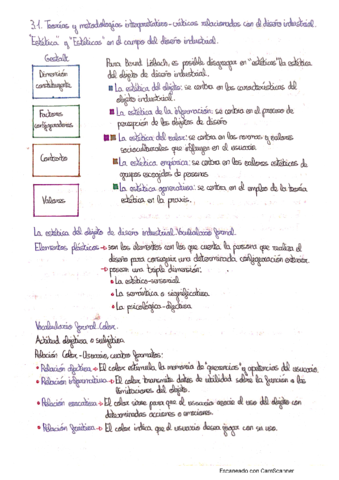 3.1. Teorías y metodologías interpretativo-críticas relacionadas con el diseño industrial.
"Estética" y "Estéticas" en el campo del diseño industrial.
Gestalt
Dimensión
constituyente
Factores
configuradores
Contexto
Valores
Para Bernd Löbach, es posible desagregar en "estéticas" la estética
del objeto de diseño industrial.
La estética del objeto: se centra en las características del
objeto industrial.
La estética de la información: se centra en el proceso de
percepción de los objetos de diseño
La estética del valor: se centra en las normas y valores
socioculturales que influyen en el usuario
La estética empírica: se centra en los valores estéticos de
grupos escogidos de personas
La estética generativa: se centra en el empleo de la teoría
estética en la praxis.
La estética del objeto de diseño industrial. Vocabulario formal.
Elementos plásticos → son los elementos con los que cuenta la persona que realiza el
diseño para conseguir una determinada configuración exterior.
→ poseen una triple dimensión:
• La estético-sensorial
• La semántica o significativa
• La psicológico-afectiva
Vocabulario formal. Color.
Actitud objetiva o subjetiva
Relación Color-Usuario, cuatro formatos:
• Relación afectiva → El color estimula la memoria de "querencias" y apetencias del usuario.
• Relación informativa → El color transmite datos de utilidad sobre la función o las
limitaciones del objeto.
• Relación asociativa → El color sirve para que el usuario asocie el uso del objeto con
determinadas acciones o emociones.
• Relación → El color indica que el usuario desea jugar con su uso.
Escaneado con CamScanner